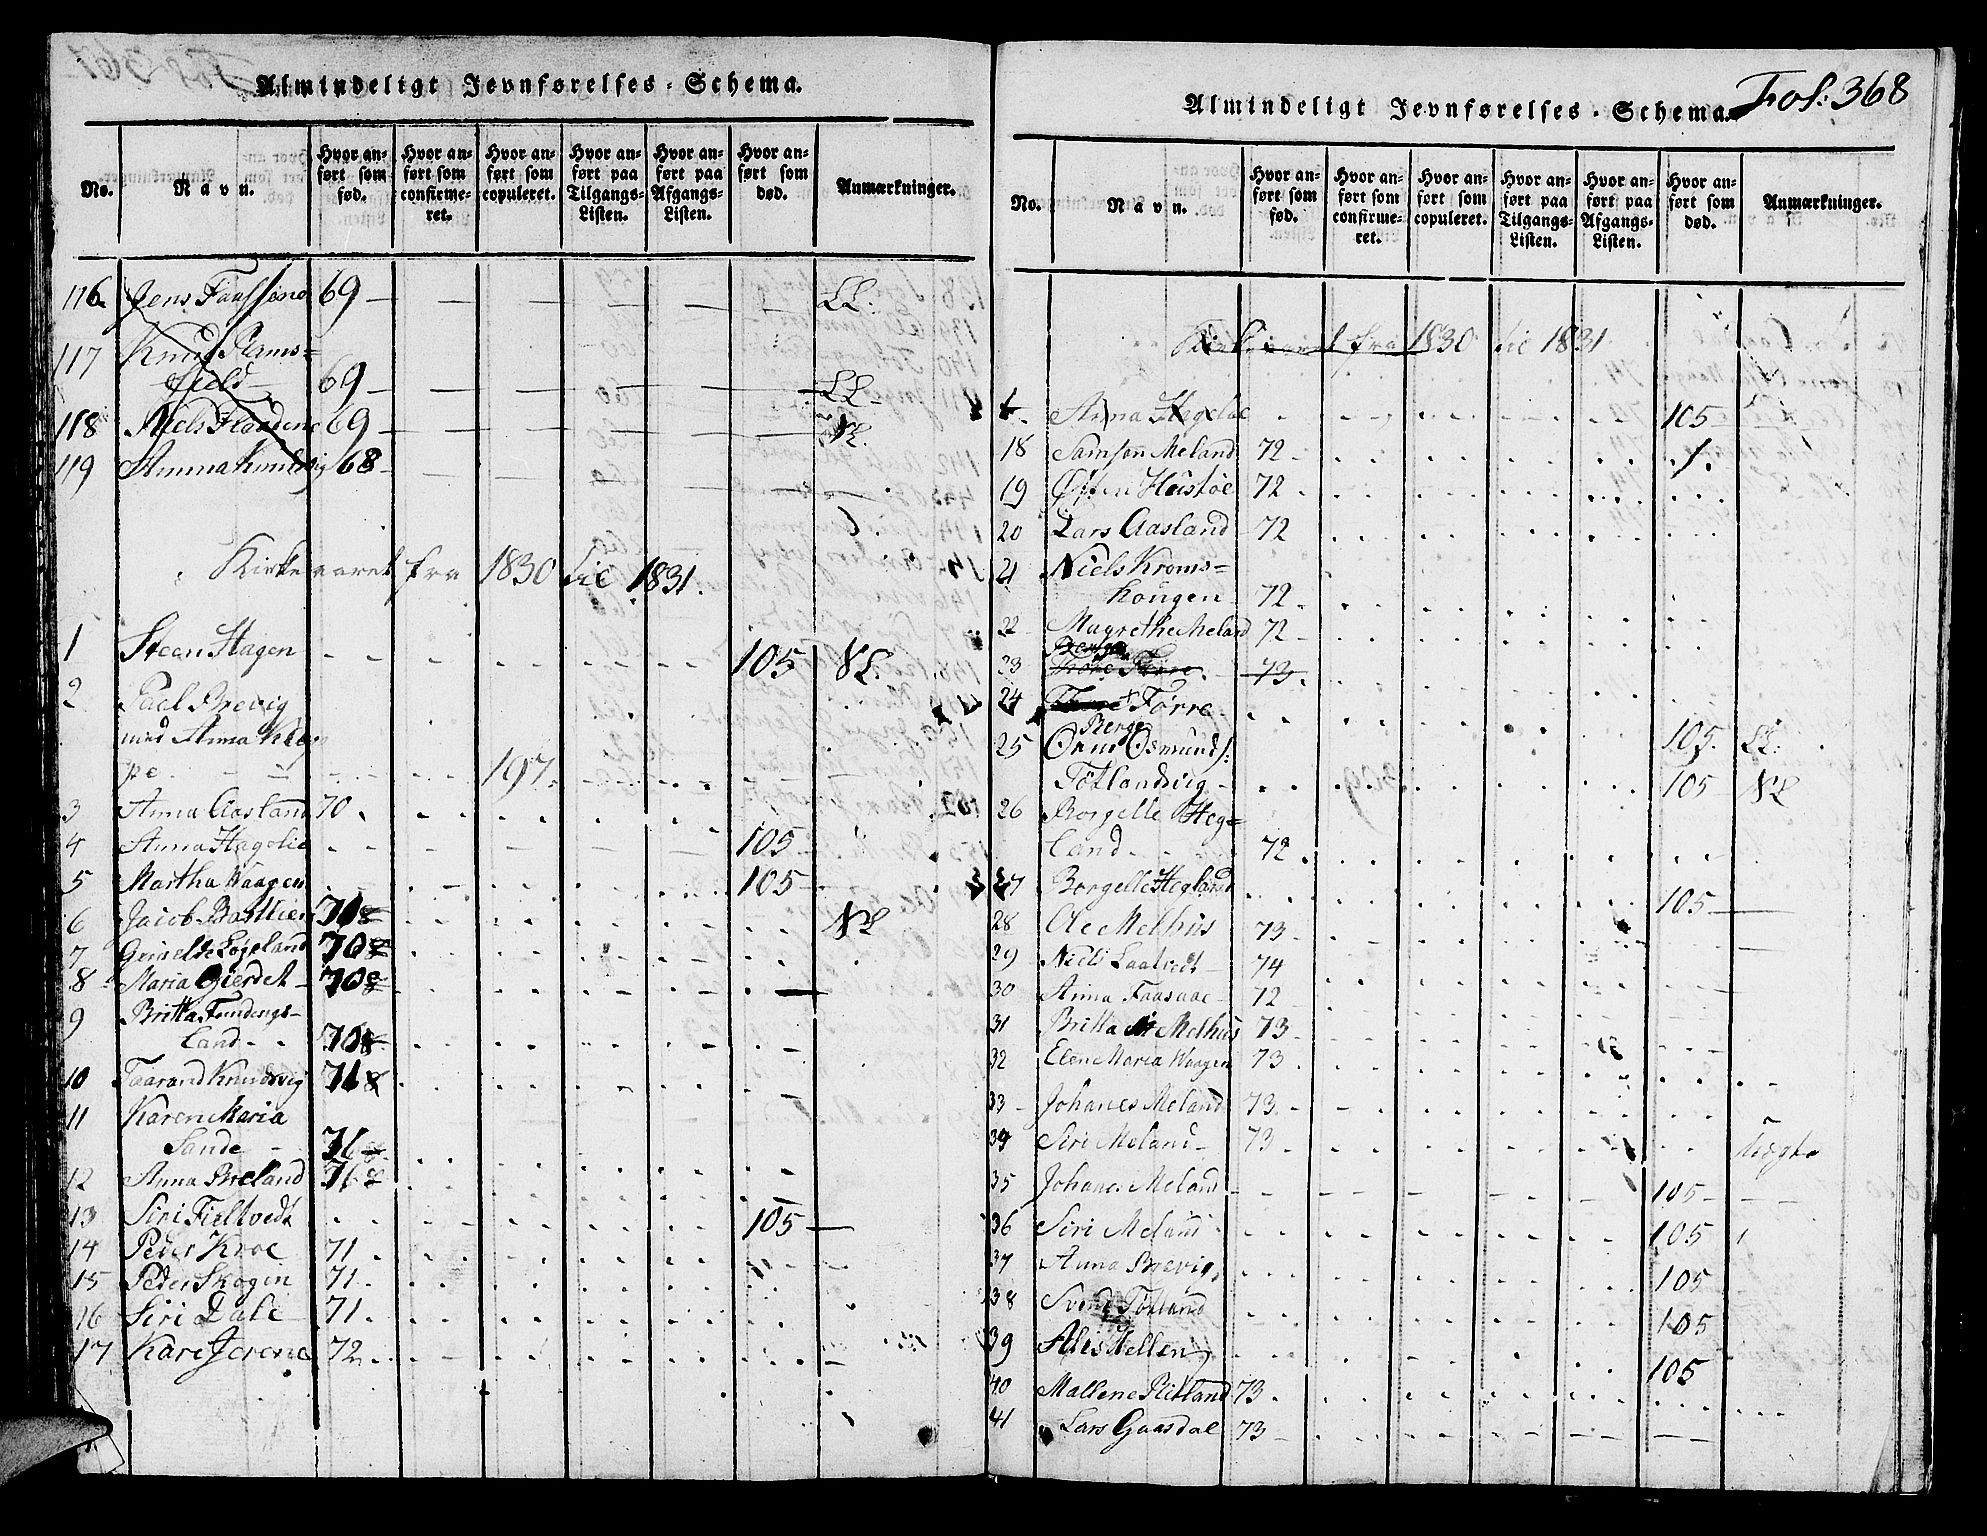 Almindeligt Jevnførelses-Schema.
No.
Navn.
Hvor anført som fød.
Hvor anført som confirmeret.
Hvor anført som copuleret.
Hvor anført paa Tilgangs-Listen.
Hvor anført paa Afgangs-Listen.
Hvor anført som død.
Anmærkninger.
116 Jens 69 —
117 Knud Rams=
field — 69 —
118 Niels 69 —
119 Anna 68 —
Kirkeaaret fra 1830 til 1831.
1 Steen Hagen 105
2 Paal Brevig
med Anna Klep
pe 197.
3 Anna Aasland 70.
4 Anna Hagelie 105
5 Martha Waagen 105 —
6 Jacob 70
7 Løgeland 70
8 Maria Gierdet 70
9 Britta Fundings-
Land 70
10 Taarand Knudsvig 71
11 Karen Maria
Sande 76
12 Anna Breland 76
13 Siri Fieltvedt 105 —
14 Peder Kroe 71
15 Peder Skogin 71
16 Siri Dale 71
17 Kari Jerene 72
Almindeligt Jevnførelses-Schema.
Fol: 368
No.
Navn.
Hvor anført som fød.
Hvor anført som confirmeret.
Hvor anført som copuleret.
Hvor anført paa Tilgangs-Listen.
Hvor anført paa Afgangs-Listen.
Hvor anført som død.
Anmærkninger.
Kirkeaaret fra 1830 til 1831
Anna 105
18 Samson Meland 72
19 Heistøe 72
20 Lars Aasland 72
21 Niels Kroms=
hougen 72
22 Magrethe Meland 72
23 73
24 Førre 105
Berge
25 Osmunds:
Tøtlandsvig 105
26 Borgelle Heg=
Land 72
27 Borgelle Hegland 105 —
28 Ole Melhus 73
29 Niels Laaltvedt 74
30 Anna Faasaae 72
31 Britta Melhus 73
32 Elen Maria Waagen 73
33 Johanes Meland 73
34 Siri Meland 73
35 Johanes Meland 105
36 Siri Meland 105
37 Anna Brevig 105
38 Svend Tøtland 105
39 Hellen 105
40 Mallene Ritland 73
41 Lars Gaasdal 73